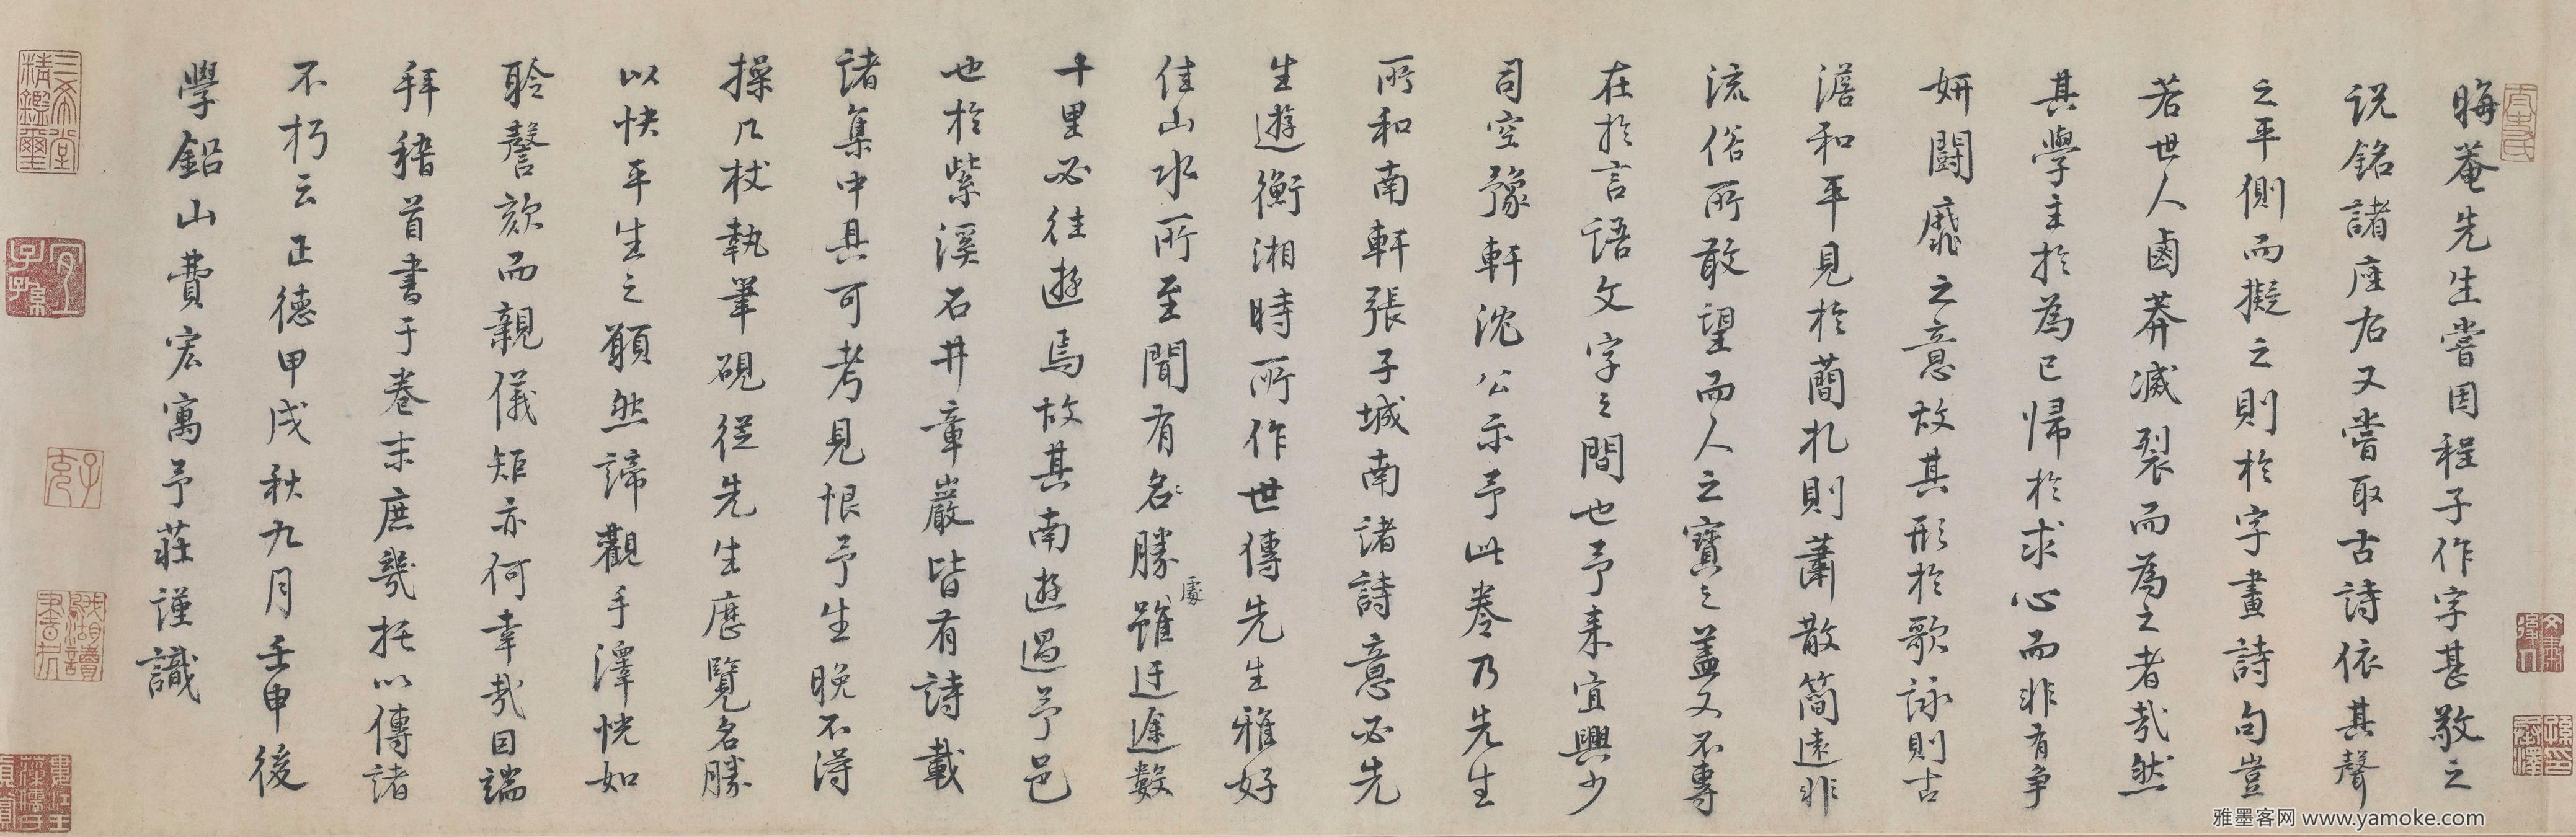 晦菴先生嘗因程子作字甚敬之
説銘諸座右又嘗取古詩依其聲
之平側而擬之則於字畫詩句豈
若世人鹵莽滅裂而為之者哉然
其學主於為己歸於求心而非有爭
妍鬪靡之意故其形於歌詠則古
澹和平見於蕳札則蕭散簡遠非
流俗所敢望而人之寶之蓋又不專
在於言語文字之間也予来宜興少
司空豫軒沈公示予此卷乃先生
所和南軒張子城南諸詩意必先
生遊衡湘時所作世傳先生雅好
佳山水所至聞有名勝處雖迂途數
十里必往遊焉故其南遊過予邑
也於紫溪石井章巖皆有詩載
諸集中具可考見恨予生晚不得
操几杖執筆硯從先生歷覽名勝
以快平生之願然諦觀手澤恍如
聆謦欬而親儀矩亦何幸哉因端
拜稽首書于卷末庶幾托以傳諸
不朽云正德甲戌秋九月壬申後
學鉛山費宏寓予莊謹識
三希堂精鑑璽
宜子孫
雅墨客网 www.yamoke.com